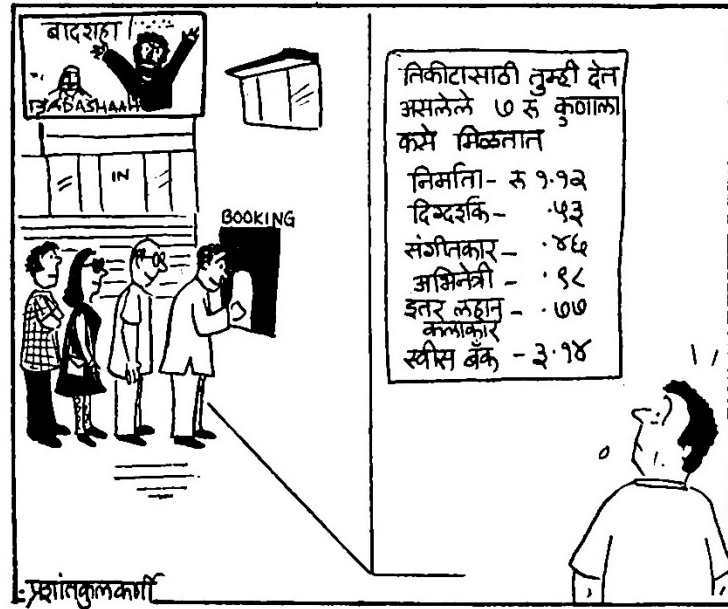 बादशहा!
BADASHAAH
IN
BOOKING
तिकीटासाठी तुम्ही देत
असलेले ७ रु कुणाला
कसे मिळतात
निर्माता - रु १.१२
दिग्दर्शक - .५३
संगीतकार - .४६
अभिनेत्री - .९८
इतर लहान - .७७
कलाकार
स्वीस बँक - ३.१४
प्रशांत कुलकर्णी